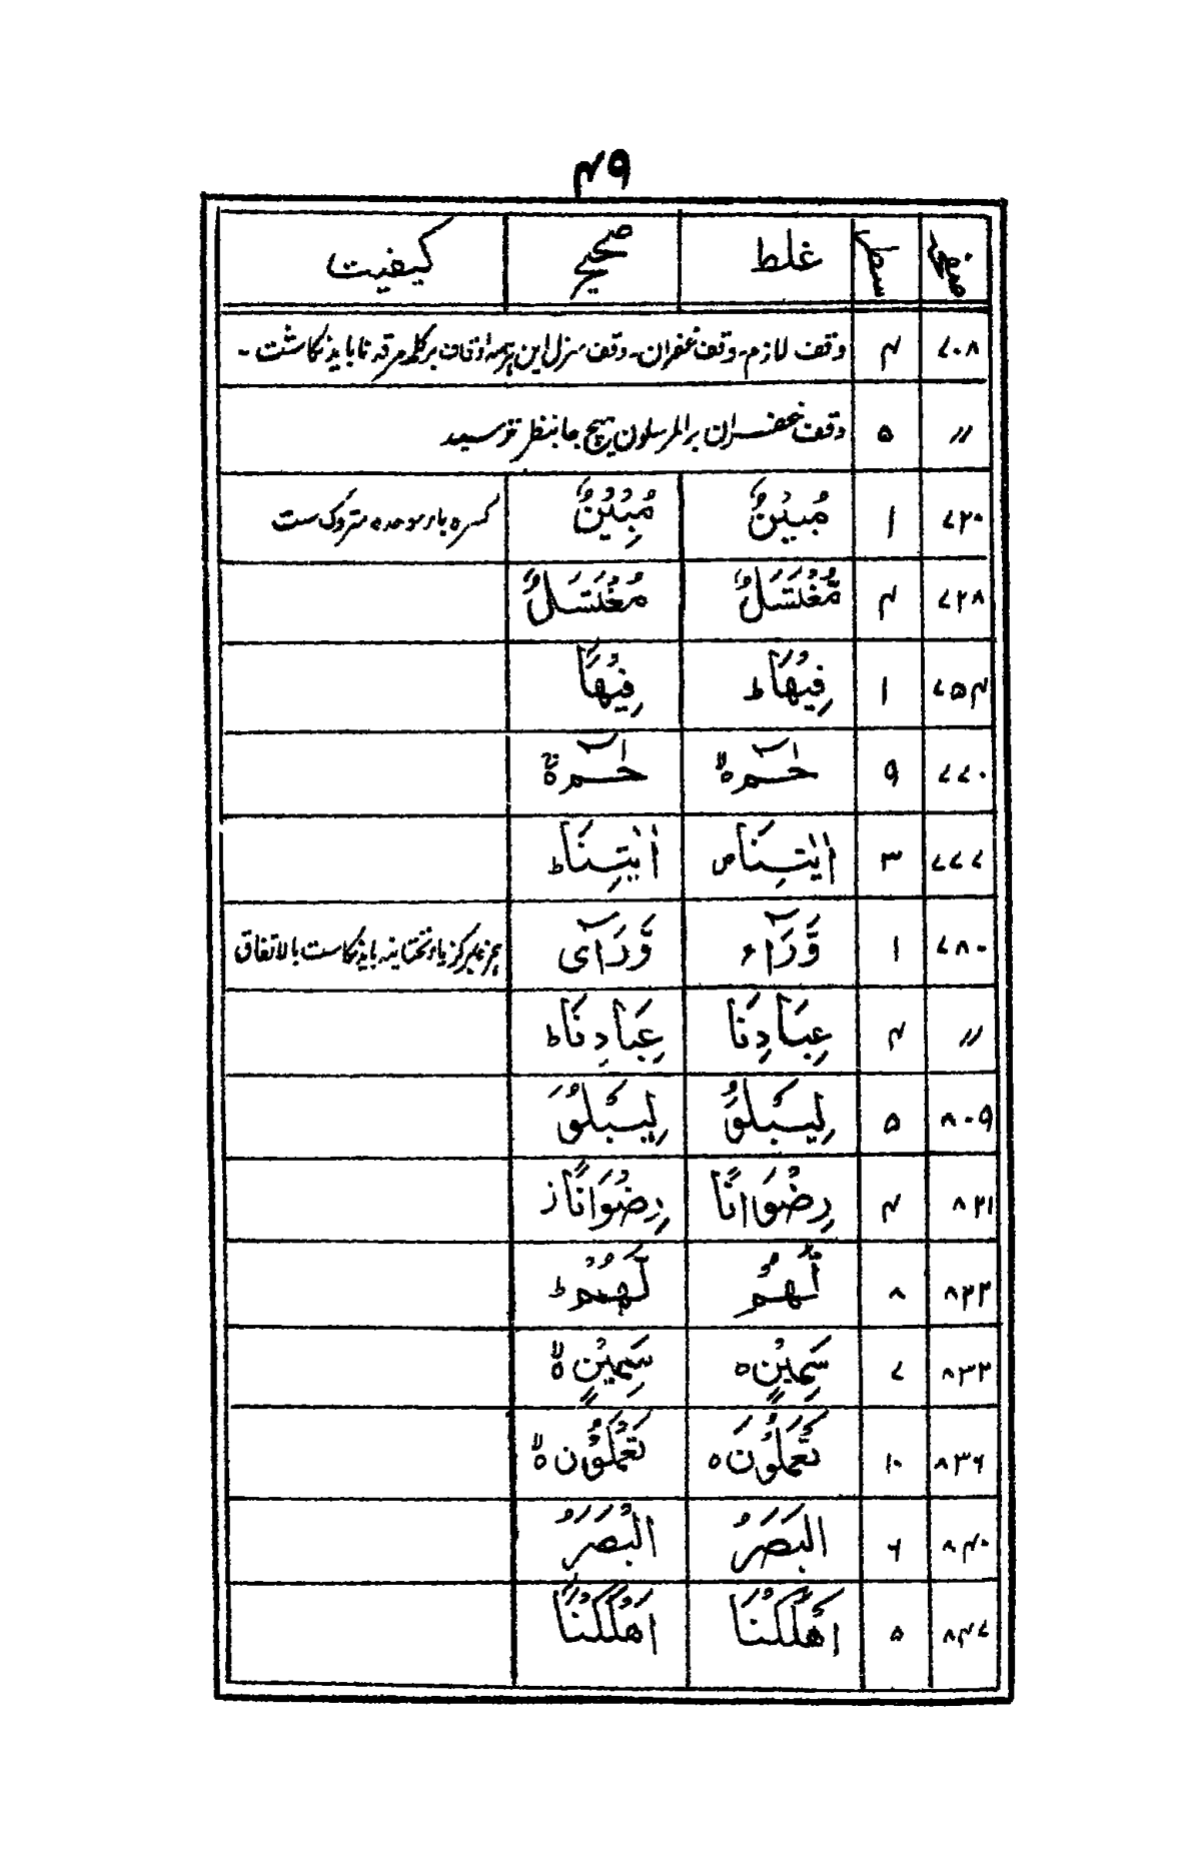 ۴۹
صفحہ سطر غلط صحیح کیفیت
۷۰۸ ۴ وقف لازم۔ وقف غفران۔ وقف منزل این ہر سہ اوقاف بر کلمہ مرقدنا باید نگاشت۔
〃 ۵ وقف غفران بر المرسلون ہیچ جا بنظر نرسید
۷۲۰ ۱ مُبِيْنٌ مُبِيْنٌ کسرہ باء موحدہ متروک ست
۷۲۸ ۴ مُّغْتَسَلٌ مُغْتَسَلٌ
۷۵۴ ۱ فِيْهَا ط فِيْهَا
۷۷۰ ۹ حٰمٓ ۃ لا حٰمٓ ۃ
۷۷۷ ۳ اٰيٰتِنَا ص اٰيٰتِنَا ط
۷۸۰ ۱ وَّرَآءِ وَّرَآیِٔ ہمزہ بمرکز یاء تحتانیہ باید نگاشت بالاتفاق
〃 ۴ عِبَادِنَا عِبَادِنَا ط
۸۰۹ ۵ لِيَبْلُوَا لِيَبْلُوَ
۸۲۱ ۴ رِضْوَانًا رِضْوَانًا ز
۸۲۲ ۸ لَّهُمْ لَهُمْ ط
۸۳۲ ۷ سَمِيْنٍ ہ سَمِيْنٍ ۃ لا
۸۳۶ ۱۰ تَعْمَلُوْنَ ہ تَعْمَلُوْنَ ۃ لا
۸۴۰ ۶ الْبَصَرُ الْبَصَرُ
۸۴۷ ۵ اَهْلَكْنَا اَهْلَكْنَا